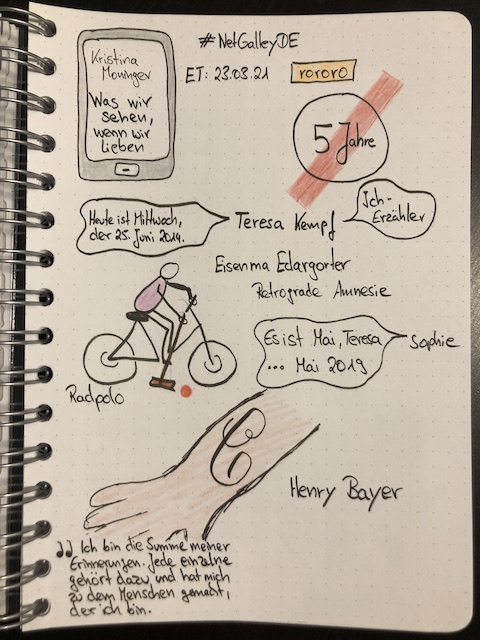 #NetGalleyDE
Kristina
Moninger
Was wir
sehen,
wenn wir
lieben
ET: 23.03.21
rororo
5 Jahre
Heute ist Mittwoch,
der 25. Juni 2014.
Teresa Kempf
Ich-
Erzähler
Eisenma Edargorter
Retrograde Amnesie
Es ist Mai, Teresa
... Mai 2019
Sophie
Radpolo
Henry Bayer
„Ich bin die Summe meiner
Erinnerungen. Jede einzelne
gehört dazu und hat mich
zu dem Menschen gemacht,
der ich bin.